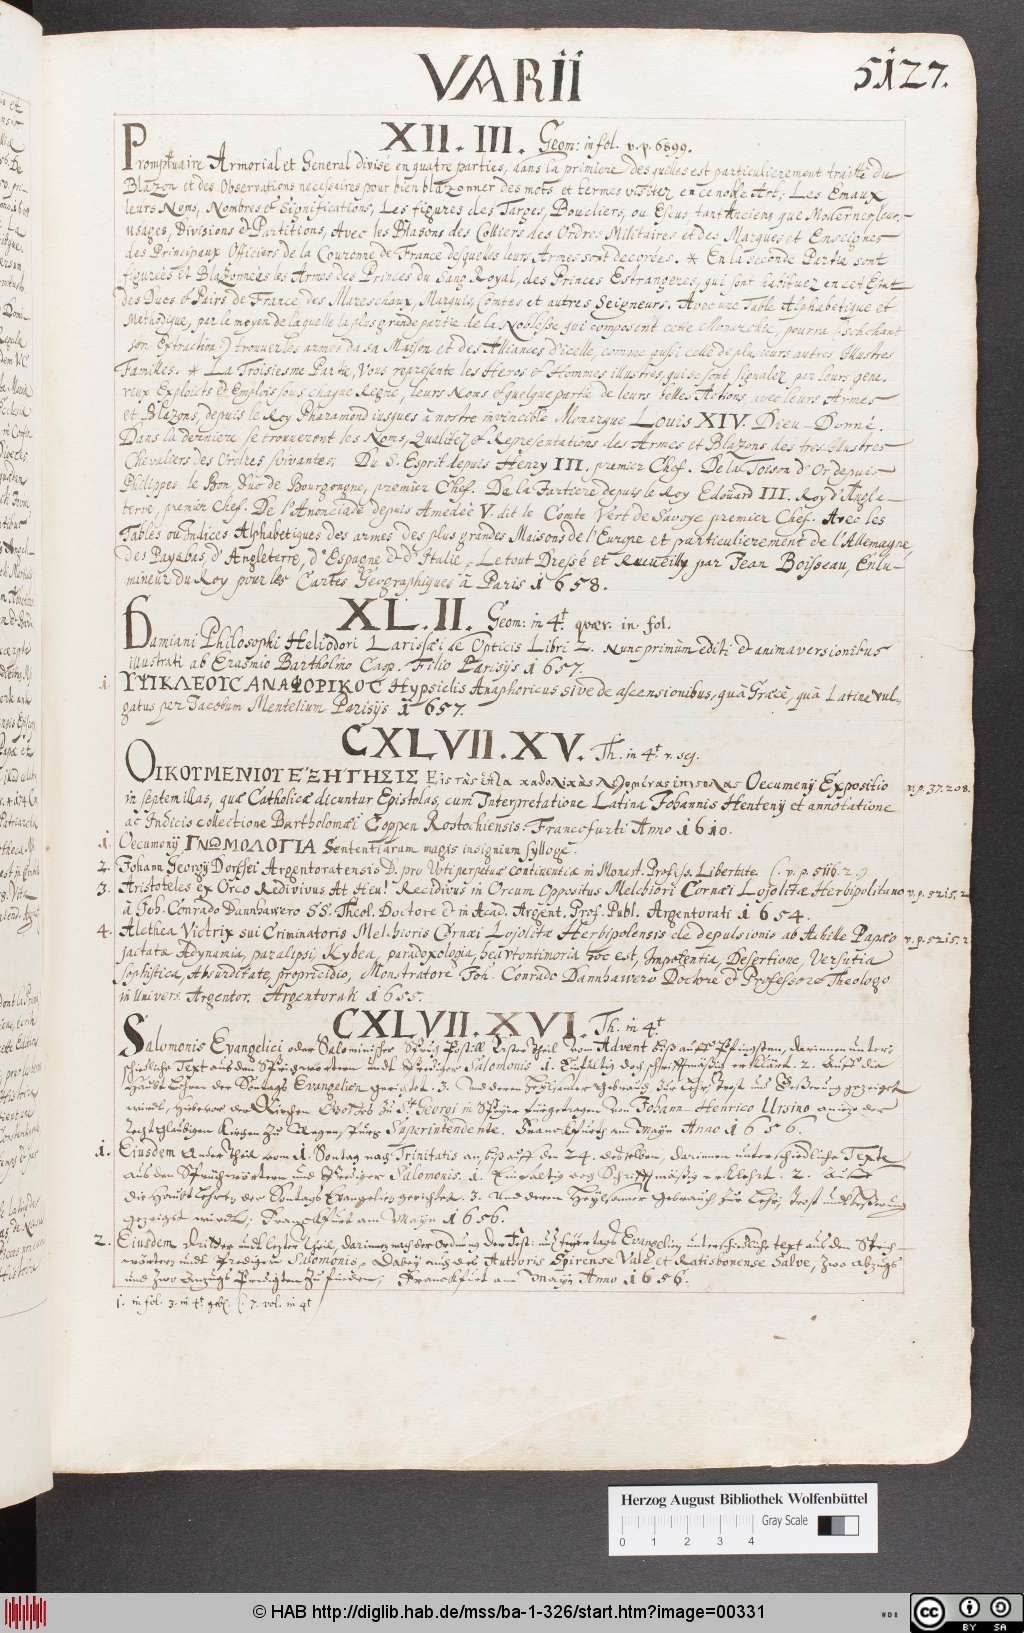 VARII
5127.
XII. III. Geom: in fol. v. p. 6899.
Promptuaire Armorial et General divisé en quatre parties, dans la primiere des quelles est particulierement traitté du
Blazon et des Observations necessaires pour bien blazonner des mots et termes visitez en ce noble Art, Les Emaux
leurs Noms, Nombres & Significations, Les figures des Targes, Boucliers, ou Escus tant Anciens que Modernes, leur
usages, Divisions & Partitions, Avec les Blasons des Colliers des Ordres Militaires et des Marques et Enseignes
des Principaux Officiers de la Couronne de France desquelles leurs Armes sont decorées. * En la seconde Partie sont
figurées et Blazonnées les Armes des Princes du Sang Royal, des Princes Estrangeres, qui sont habituez en cet Estat
des Ducs & Pairs de France des Mareschaux, Marquis, Comtes et autres Seigneurs. Avec une Table Alphabetique et
Methodique, par le moyen de laquelle la plus grande partie de la Noblesse qui composent cette Monarchie, pourra (schehant
son Extraction) trouver les armes da sa Maison et des Alliances d'icelle, comme aussi celle de plusieurs autres Illustres
Familes. * La Troisiesme Partie, Vous represente les Heros & Hommes illustres, qui se sont signalez par leurs gene-
reux Exploicts et Emplois sous chaque Regne, leurs Noms & quelque partie de leurs belles Actions, avec leurs Armes
et Blazons, depuis le Roy Pharamond iusques à nostre invincible Monarque Louis XIV. Dieu-Donné.
Dans la derniere se trouveront les Noms, Qualitez & Representations des Armes et Blazons des tres Illustres
Chevaliers des Ordres suivantes. Du S. Esprit depuis Henry III. premier Chef. De la Toison d'Or depuis
Philippes le Bon Duc de Bourgongne, premier Chef. De la Jartiere depuis le Roy Edouard III. Roy d'Angle-
terre, premier Chef. De l'Anonciade depuis Amedée V. dit le Comte Vert de Savoye premier Chef. Avec les
Tables ou Indices Alphabetiques des armes des plus grandes Maisons de l'Europe et particulierement de l'Allemagne,
des Paysbas, d'Angleterre, d'Espagne & d'Italie, Le tout Dressé et Recueilly par Jean Boisseau, Enlu-
mineur du Roy pour les Cartes Geographiques à Paris 1658.
XL. II. Geom: in 4t. quær. in fol.
Damiani Philosophi Heliodori Larissæi de Opticis Libri 2. Nunc primùm editi & animaversionibus
illustrati ab Erasmio Bartholino Casp. Filio Parisijs 1657.
1. ΥΨΙΚΛΕΟΥΣ ΑΝΑΦΟΡΙΚΟΣ Hypsiclis Anaphoricus sive de ascensionibus, quà Græcè, quà Latinè vul-
gatus per Jacobum Mentelium Parisijs 1657.
CXLVII. XV. Th. in 4t v. seq.
ΟΙΚΟΥΜΕΝΙΟΥ ΕΞΗΓΗΣΙΣ Εἰς τὰς ἑπτα καθολικὰς λεγομένας ἐπιστολας Oecumenij Expositio v. p. 37. 208.
in septem illas, quæ Catholicæ dicuntur Epistolas, cum Interpretatione Latina Johannis Hentenij et annotatione
ac Indicis collectione Bartholomæi Coppen Rostochiensis. Francofurti Anno 1610.
1. Oecumenij ΓΝΩΜΟΛΟΓΙΑ Sententiarum magis insignium sylloge.
2. Johann Georgij Dorschei Argentoratensis D. pro Voti perpetuæ continentiæ in Monast. Profess. Libertate (. v. p. 5116. 2.)
3. Aristoteles ex Orco Redivivus At Heu! Recidivus in Orcum Oppositus Melchiori Cornæi Lojolitæ Herbipolitano v. p. 5215. 2.
à Joh. Conrado Dannhawero SS. Theol. Doctore & in Acad. Argent. Prof. Publ. Argentorati 1654.
4. Alethea Victrix sui Criminatoris Melchioris Cornæi Lojolitæ Herbipolensis de depulsionis ab Achille Papæo v. p. 5215. 2.
jactatæ Adynamia, paralipsi, Kybea, paradoxologia, heavtontimoria hoc est, Impotentia, Desertione, Versutia
sophistica, Absurditate, propricidio, Monstratore Joh. Conrado Dannhawero Doctore & Professore Theologo
in Univers. Argentor. Argentorati 1655.
CXLVII. XVI. Th. in 4t
Salomonis Evangelici oder Salominischer Spruch Postill Erster Theil Vom Advent biß auff Pfingsten, darinnen unter-
schiedliche Text aus den Sprichwörtern undt Prediger Salomonis 1. Einfältig doch schrifftmäßig erkläret. 2. Auff die
Haubt Lehren der Sontags Evangelien gerichtet. 3. Und deren heylsamer Gebrauch zur Lehr, trost und Beßerung gezeiget
wirdt, hiebevor der Kirchen Gottes zu St. Georgi in Speyer fürgetragen von Johann Henrico Ursino anitzo der
Recht glaubigen Kirchen zu Regenspurg Superintendente. Franckfurth am Mayn Anno 1656.
1. Eiusdem Ander Theil vom 1. Sontag nach Trinitatis an, biß auff den 24. deßelben, darinnen unterschiedliche Texte
aus den Spruchwörtern und Prediger Salomonis. 1. Einfältig doch Schrifftmäßig erklehret. 2. auff
die Haubt Lehren der Sontags Evangelien gerichtet. 3. Und deren heylsamer Gebrauch zur Lehr, trost und beßerung
gezeiget wirdt, Franckfurt am Mayn 1656.
2. Eiusdem Dritter undt letzter theil, darinnen nach der Ordnung der Fest- und feyertags Evangelien, unterschiedliche text aus den Sprich-
wörtern undt Prediger Salomonis, Dabey auch des Authoris Spirense Vale et Ratisbonense Salve, zwo abzugs
und zwo anzugs Predigten zu finden, Franckfurt am Mayn Anno 1656.
1. in fol. 3. in 4t gebl. (. 7. vol. in 4t
Herzog August Bibliothek Wolfenbüttel
0 1 2 3 4 Gray Scale
© HAB http://diglib.hab.de/mss/ba-1-326/start.htm?image=00331
WDB
cc BY SA